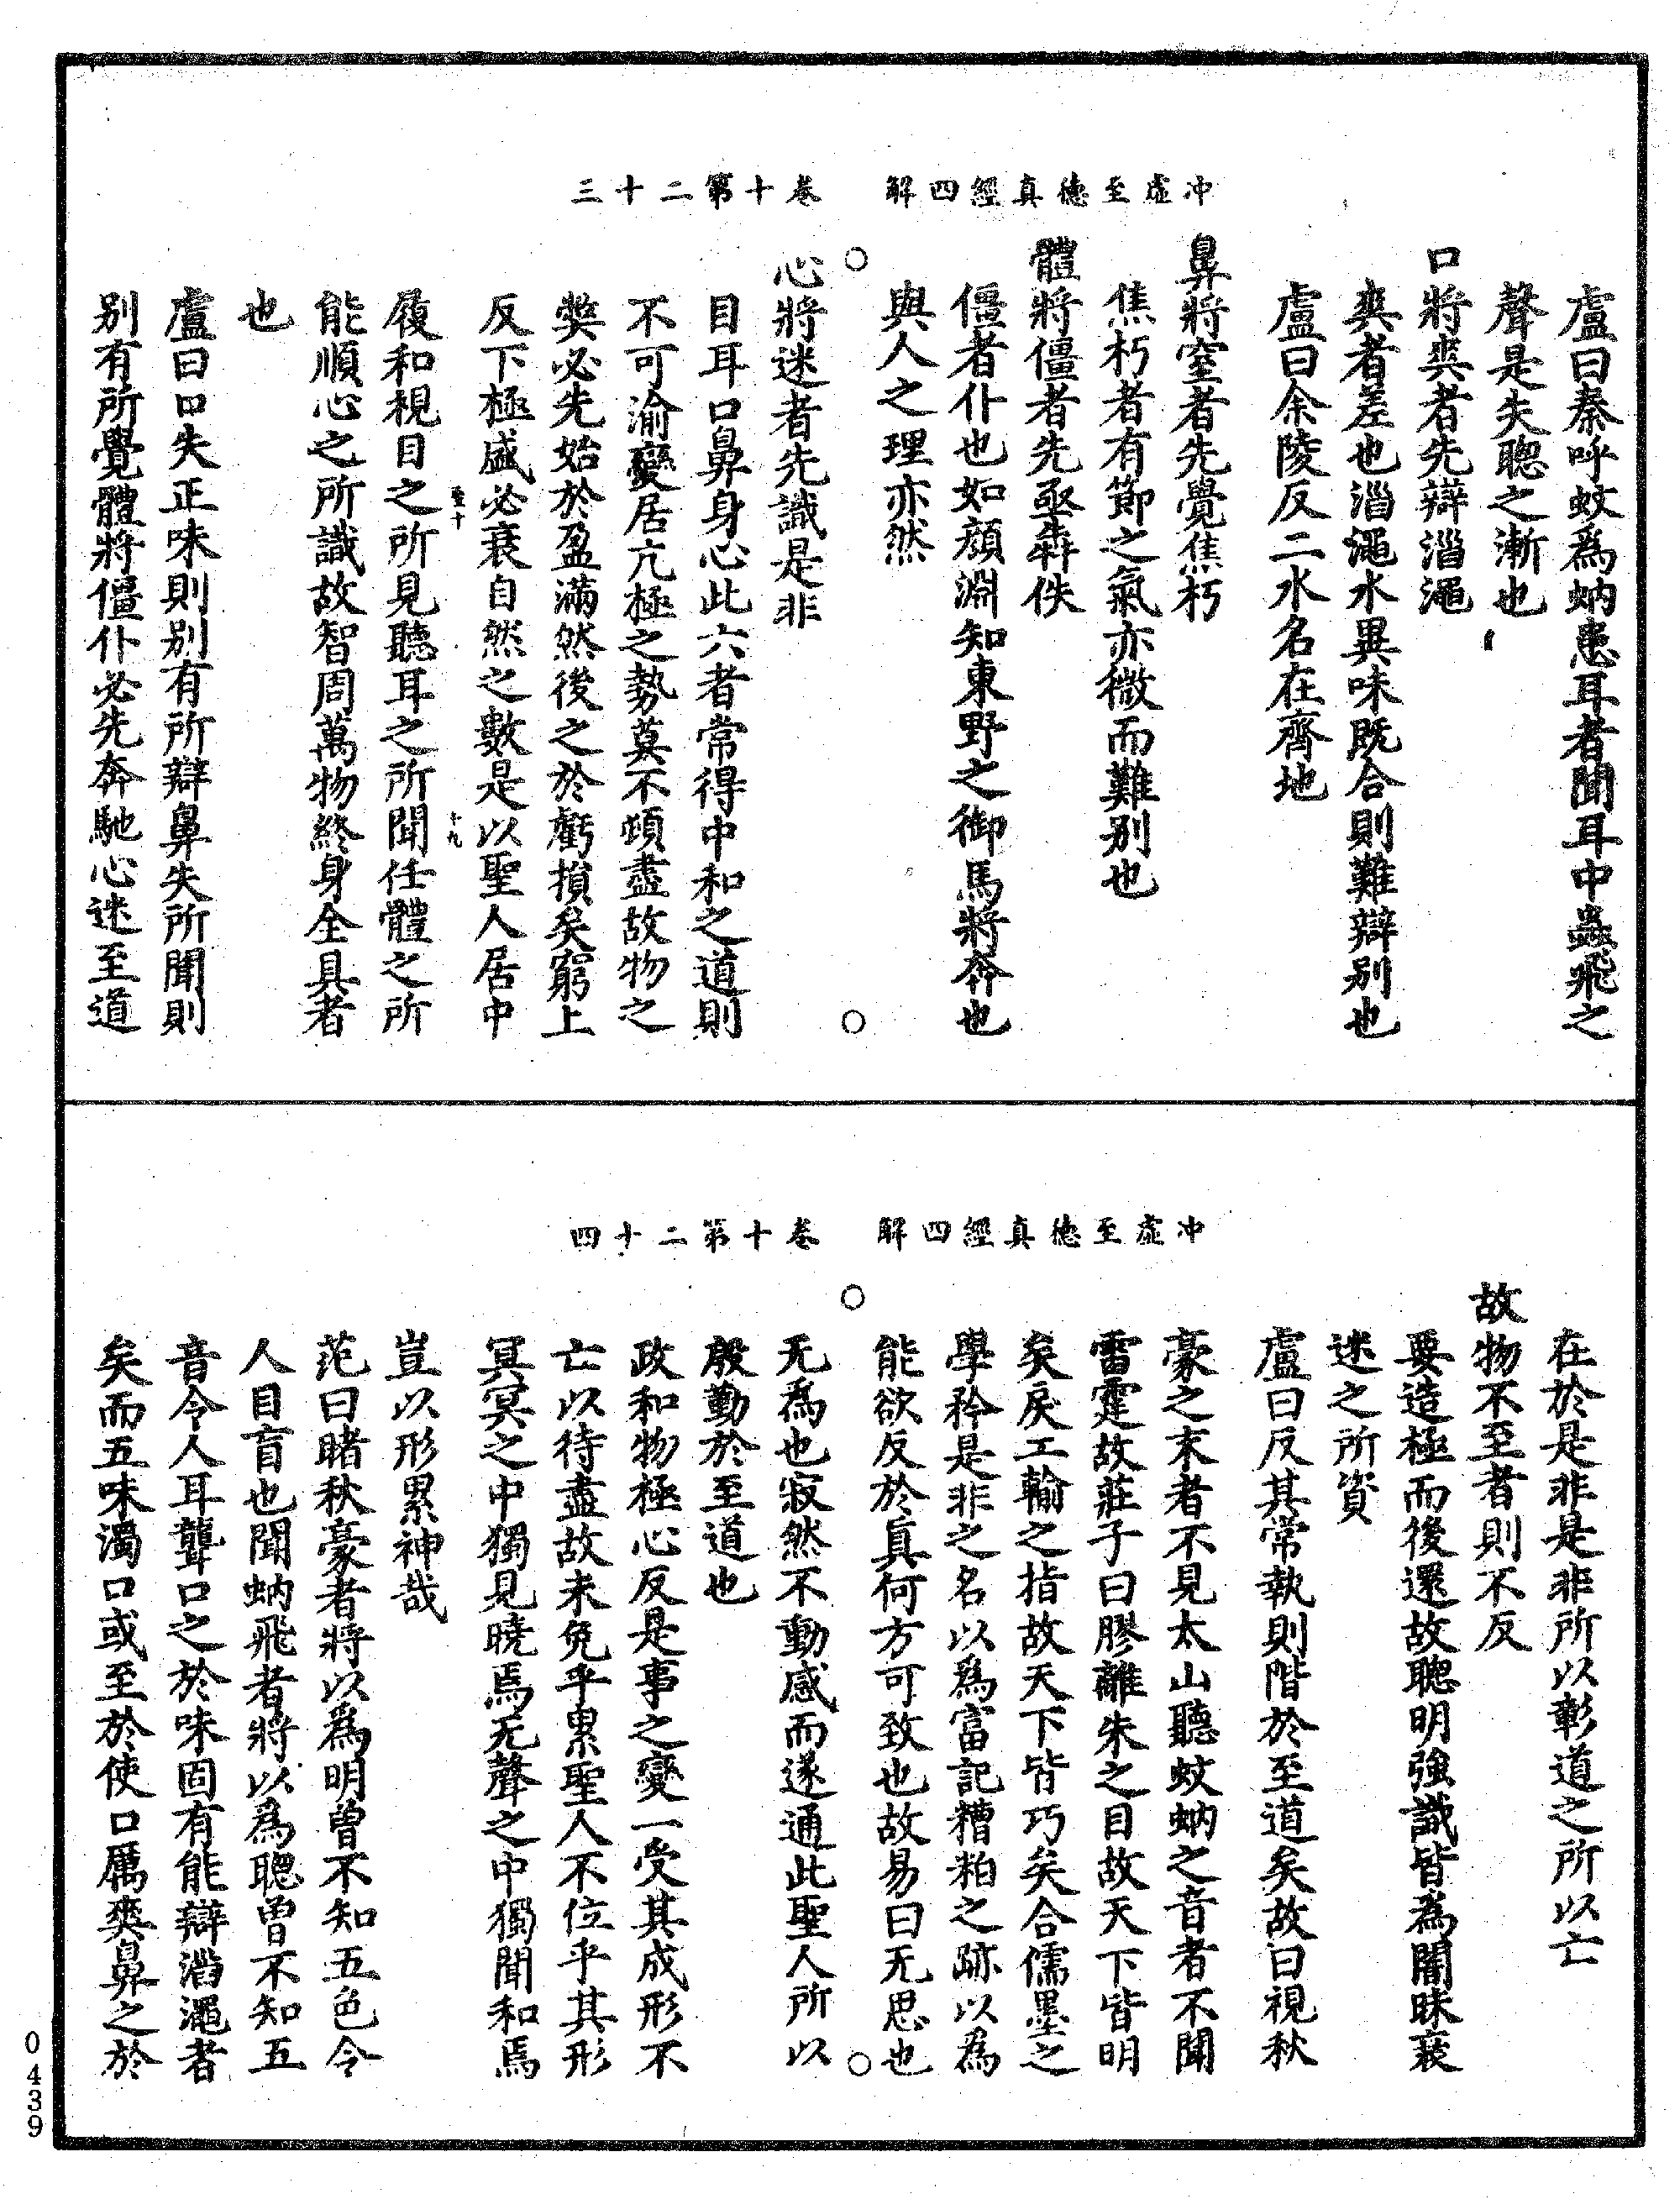 冲虛至德真經四解　卷十第二十三
盧曰秦呼蚊爲蚋患耳者聞耳中蟲飛之
聲是失聰之漸也
口將爽者先辯淄澠
爽者差也淄澠水異味既合則難辯别也
盧曰余陵反二水名在齊地
鼻將窒者先覺焦朽
焦朽者有節之氣亦微而難别也
體將僵者先亟犇佚
僵者仆也如顔淵知東野之御馬將奔也
與人之理亦然
心將迷者先識是非
目耳口鼻身心此六者常得中和之道則
不可渝變居亢極之勢莫不頓盡故物之
弊必先始於盈滿然後之於虧損矣窮上
反下極盛必衰自然之數是以聖人居中
十九
履和視目之所見聽耳之所聞任體之所
能順心之所識故智周萬物終身全具者
也
盧曰口失正味則别有所辯鼻失所聞則
别有所覺體將僵仆必先奔馳心迷至道
冲虛至德真經四解　卷十第二十四
在於是非是非所以彰道之所以亡
故物不至者則不反
要造極而後還故聰明強識皆為闇昧衰
迷之所資
盧曰反其常執則階於至道矣故曰視秋
豪之末者不見太山聽蚊蚋之音者不聞
雷霆故莊子曰膠離朱之目故天下皆明
矣戾工輸之指故天下皆巧矣合儒墨之
學矜是非之名以爲富記糟粕之跡以為
能欲反於真何方可致也故易曰无思也
无爲也寂然不動感而遂通此聖人所以
殷勤於至道也
政和物極心反是事之變一受其成形不
亡以待盡故未免乎累聖人不位乎其形
冥冥之中獨見曉焉无聲之中獨聞和焉
豈以形累神哉
范曰睹秋豪者將以爲明曾不知五色令
人目盲也聞蚋飛者將以爲聰曾不知五
音令人耳聾口之於味固有能辯淄澠者
矣而五味濁口或至於使口厲爽鼻之於
0439